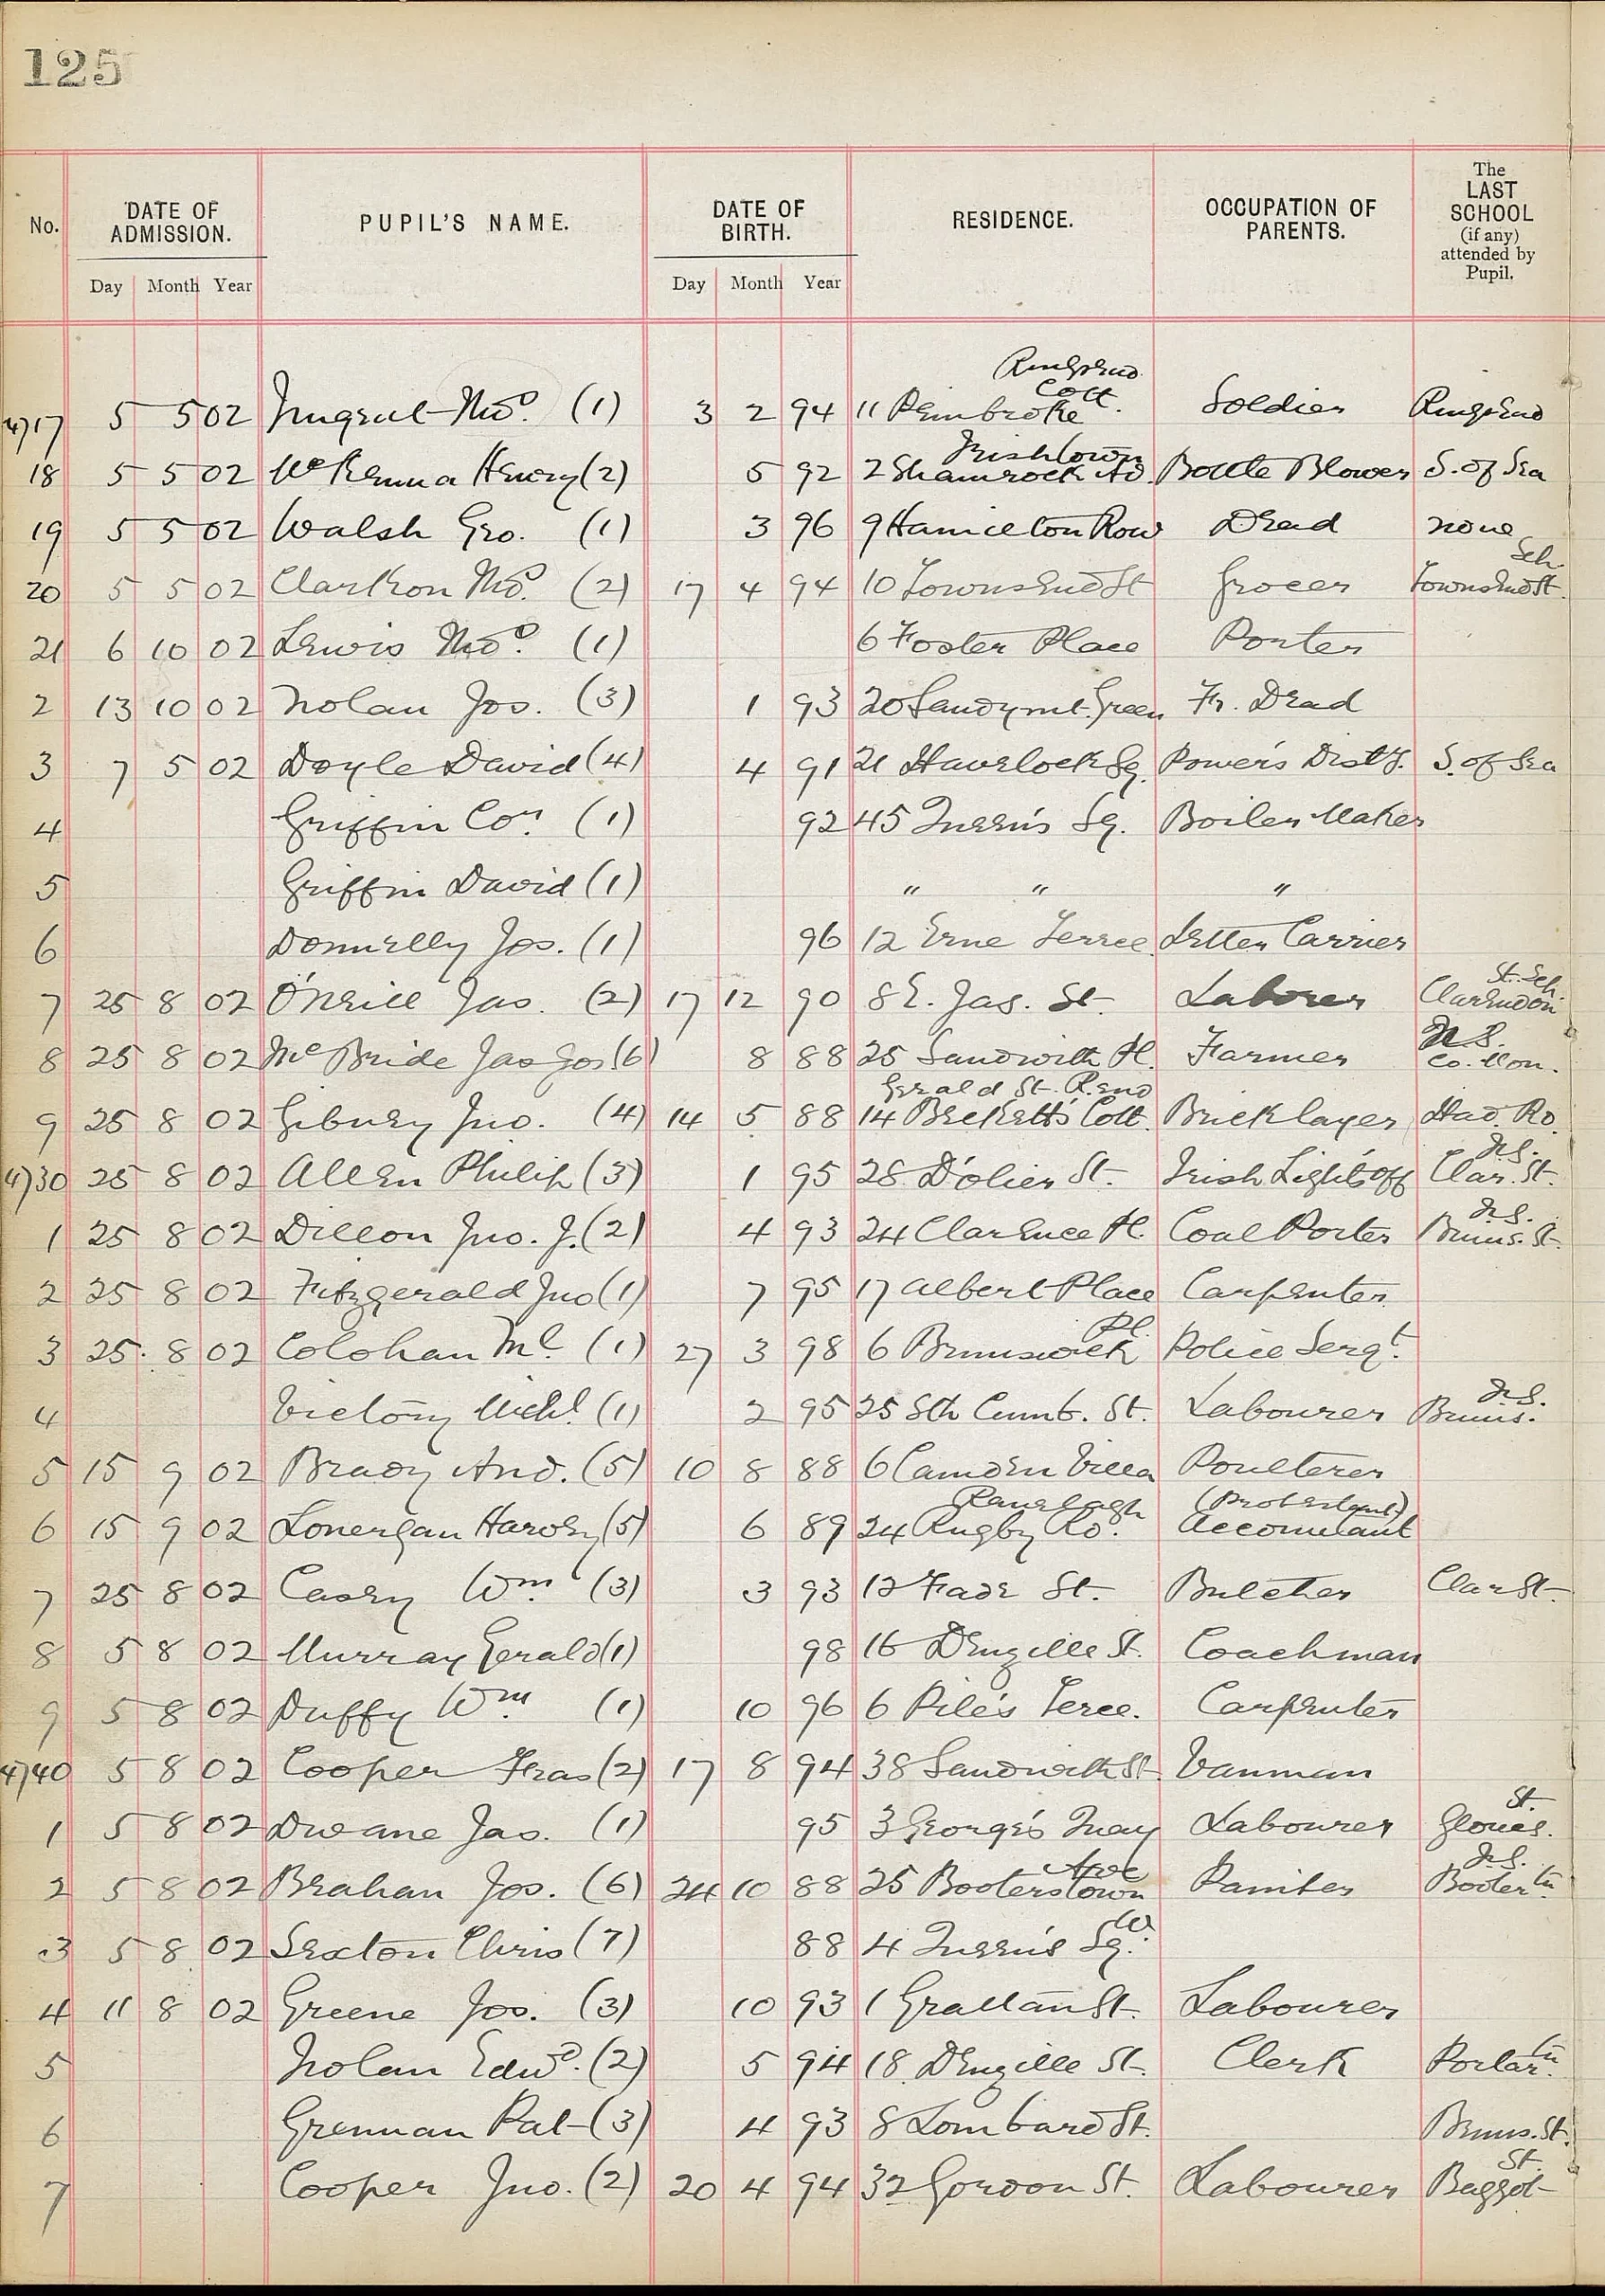 125
No. DATE OF ADMISSION. PUPIL'S NAME. DATE OF BIRTH. RESIDENCE. OCCUPATION OF PARENTS. The LAST SCHOOL (if any) attended by Pupil.
Day Month Year Day Month Year
Ringsend
Cott.
4)17 5 5 02 Nugent Thos. (1) 3 2 94 11 Pembroke Soldier Ringsend
Irishtown
18 5 5 02 McKenna Henry (2) 5 92 2 Shamrock Av. Bottle Blower S. of Sea
19 5 5 02 Walsh Geo. (1) 3 96 9 Hamilton Row Dead none
Sch.
20 5 5 02 Clarkson Thos. (2) 17 4 94 10 Townsend St Grocer Townsend St.
21 6 10 02 Lewis Thos. (1) 6 Foster Place Porter
2 13 10 02 Nolan Jos. (3) 1 93 20 Sandymt. Green Fr. Dead
3 7 5 02 Doyle David (4) 4 91 21 Havelock Sq. Power's Disty. S. of Sea
4 Griffin Cor. (1) 92 45 Queen's Sq. Boiler Maker
5 Griffin David (1) " " "
6 Donnelly Jos. (1) 96 12 Erne Terrce. Letter Carrier
St. Sch.
7 25 8 02 O'Neill Jas. (2) 17 12 90 8 E. Jas. St. Laborer Clarendon
N.S.
8 25 8 02 McBride Jas Jos (6) 8 88 25 Sandwith Pl. Farmer Co. Mon.
Gerald St. R.end
9 25 8 02 Gibney Jno. (4) 14 5 88 14 Beckett's Cott. Bricklayer Had. Ro.
N.S.
4)30 25 8 02 Allen Philip (3) 1 95 28 D'olier St. Irish Lights Off Clar. St.
N.S.
1 25 8 02 Dillon Jno. J. (2) 4 93 24 Clarence Pl. Coal Porter Bruns. St.
2 25 8 02 Fitzgerald Jno (1) 7 95 17 Albert Place Carpenter
Pl.
3 25. 8 02 Colohan Ml. (1) 27 3 98 6 Brunswick Police Sergt.
N.S.
4 Victory Michl. (1) 2 95 25 Sth Cumb. St. Labourer Bruns.
5 15 9 02 Brady And. (5) 10 8 88 6 Camden Villa Poulterer
Ranelagh (Protestant)
6 15 9 02 Lonergan Harvey (5) 6 89 24 Rugby Ro. Accountant
7 25 8 02 Casey Wm. (3) 3 93 12 Fade St. Butcher Clar St.
8 5 8 02 Murray Gerald (1) 98 16 Denzille St. Coachman
9 5 8 02 Duffy Wm. (1) 10 96 6 Pile's Terce. Carpenter
4)40 5 8 02 Cooper Fras (2) 17 8 94 38 Sandwith St. Vanman
St.
1 5 8 02 Dwane Jas. (1) 95 3 George's Quay Labourer Glouces.
Ave N.S.
2 5 8 02 Brahan Jos. (6) 24 10 88 25 Booterstown Painter Booter tn.
W.
3 5 8 02 Sexton Chris (7) 88 4 Queen's Sq.
4 11 8 02 Greene Jos. (3) 10 93 1 Grattan St. Labourer
5 Nolan Edwd. (2) 5 94 18 Denzille St. Clerk Portar tn.
6 Grennan Pat (3) 4 93 8 Lombard St. Bruns. St.
St.
7 Cooper Jno. (2) 20 4 94 32 Gordon St. Labourer Baggot